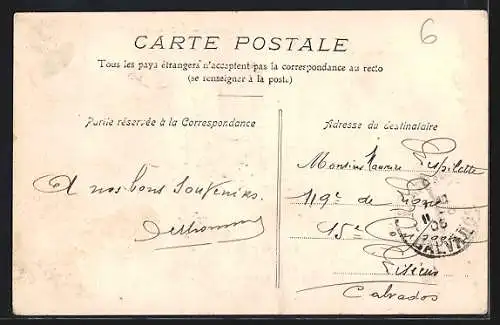 6
CARTE POSTALE
Tous les pays étrangers n'acceptent pas la correspondance au recto
(se renseigner à la poste.)
Partie réservée à la Correspondance
A nos bons Souvenirs.
Adresse du destinataire
Monsieur Maurice Lespilette
119e de ligne
15e
Lisieux
Calvados
11
06
CALVADOS